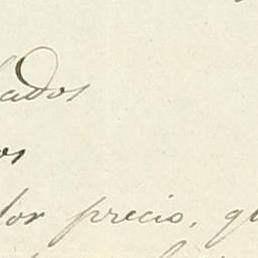 ados
os
lor precio, qu